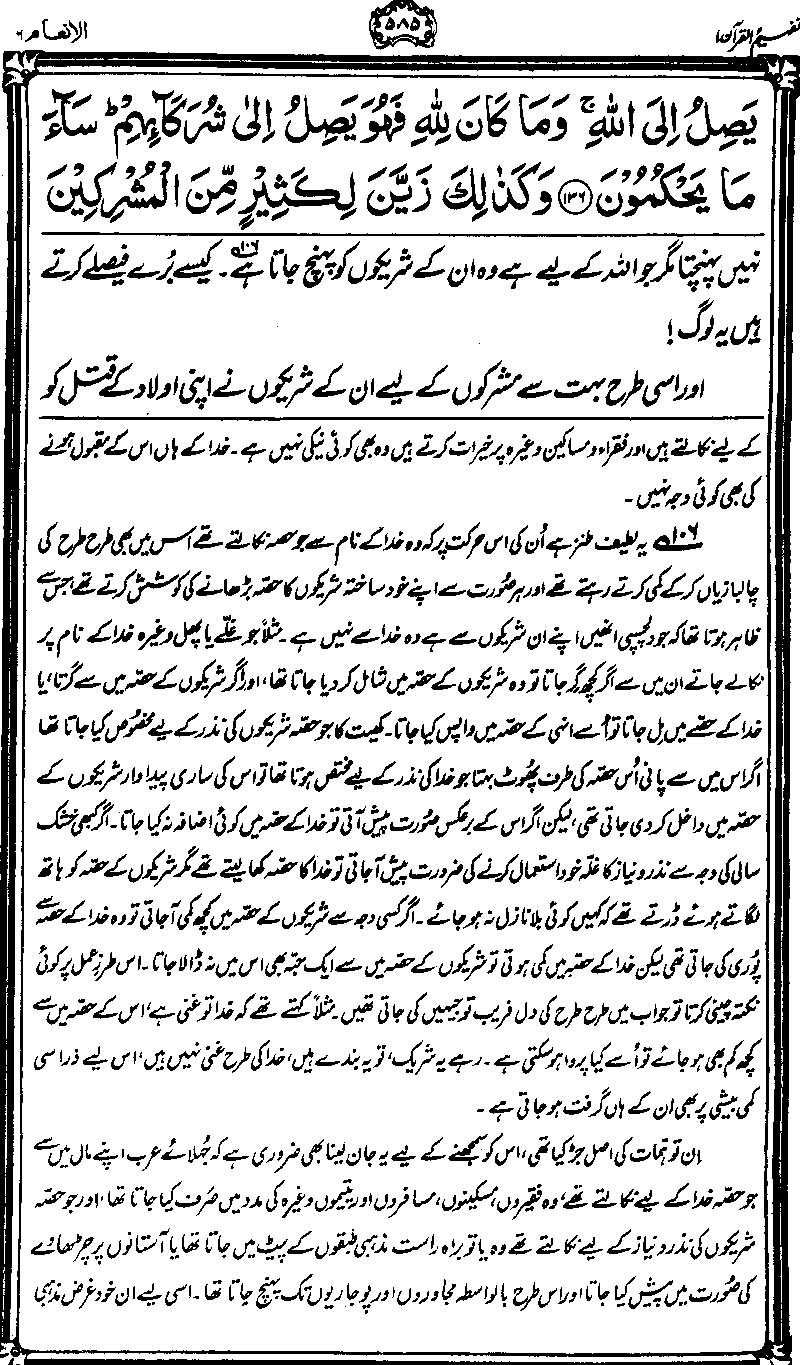 تفہیم القرآن ۱
۵۸۵
الانعام ۶
يَصِلُ اِلَى اللّٰهِ ۚ وَمَا كَانَ لِلّٰهِ فَهُوَ يَصِلُ اِلٰى شُرَكَآئِهِمْ ؕ سَآءَ
مَا يَحْكُمُوْنَ ﴿۱۳۶﴾ وَكَذٰلِكَ زَيَّنَ لِكَثِيْرٍ مِّنَ الْمُشْرِكِيْنَ
نہیں پہنچتا مگر جو اللہ کے لیے ہے وہ ان کے شریکوں کو پہنچ جاتا ہے۱۰۶۔ کیسے بُرے فیصلے کرتے
ہیں یہ لوگ!
اور اسی طرح بہت سے مشرکوں کے لیے ان کے شریکوں نے اپنی اولاد کے قتل کو
کے لیے نکالتے ہیں اور فقراء و مساکین وغیرہ پر خیرات کرتے ہیں وہ بھی کوئی نیکی نہیں ہے۔ خدا کے ہاں اس کے مقبول ہونے
کی بھی کوئی وجہ نہیں۔
۱۰۶ یہ لطیف طنز ہے اُن کی اس حرکت پر کہ وہ خدا کے نام سے جو حصہ نکالتے تھے اُس میں بھی طرح طرح کی
چالبازیاں کر کے کمی کرتے رہتے تھے اور ہر صورت سے اپنے خود ساختہ شریکوں کا حصّہ بڑھانے کی کوشش کرتے تھے جس سے
ظاہر ہوتا تھا کہ جو دلچسپی انھیں اپنے ان شریکوں سے ہے وہ خدا سے نہیں ہے۔ مثلاً جو غلّے یا پھل وغیرہ خدا کے نام پر
نکالے جاتے ان میں سے اگر کچھ گر جاتا تو وہ شریکوں کے حصہ میں شامل کر دیا جاتا تھا، اور اگر شریکوں کے حصہ میں سے گرتا، یا
خدا کے حصّے میں مل جاتا تو اُسے انہی کے حصہ میں واپس کیا جاتا۔ کھیت کا جو حصّہ شریکوں کی نذر کے لیے مخصوص کیا جاتا تھا
اگر اس میں سے پانی اُس حصّہ کی طرف پھوٹ بہتا جو خدا کی نذر کے لیے مختص ہوتا تھا تو اس کی ساری پیداوار شریکوں کے
حصّہ میں داخل کر دی جاتی تھی، لیکن اگر اس کے برعکس صُورت پیش آتی تو خدا کے حصہ میں کوئی اضافہ نہ کیا جاتا۔ اگر کبھی خشک
سالی کی وجہ سے نذر و نیاز کا غلّہ خود استعمال کرنے کی ضرورت پیش آجاتی تو خدا کا حصّہ کھا لیتے تھے مگر شریکوں کے حصّہ کو ہاتھ
لگاتے ہوئے ڈرتے تھے کہ کہیں کوئی بلا نازل نہ ہو جائے۔ اگر کسی وجہ سے شریکوں کے حصہ میں کچھ کمی آجاتی تو وہ خدا کے حصّہ سے
پُوری کی جاتی تھی لیکن خدا کے حصّہ میں کمی ہوتی تو شریکوں کے حصّہ میں سے ایک حبّہ بھی اس میں نہ ڈالا جاتا۔ اس طرزِ عمل پر کوئی
نکتہ چینی کرتا تو جواب میں طرح طرح کی دل فریب توجیہیں کی جاتی تھیں۔ مثلاً کہتے تھے کہ خدا تو غنی ہے، اس کے حصّہ میں سے
کچھ کم بھی ہو جائے تو اُسے کیا پروا ہو سکتی ہے۔ رہے یہ شریک، تو یہ بندے ہیں، خدا کی طرح غنی نہیں ہیں، اس لیے ذرا سی
کمی بیشی پر بھی ان کے ہاں گرفت ہو جاتی ہے۔
ان توہمات کی اصل جڑ کیا تھی، اس کو سمجھنے کے لیے یہ جان لینا بھی ضروری ہے کہ جُہلائے عرب اپنے مال میں سے
جو حصّہ خدا کے لیے نکالتے تھے، وہ فقیروں، مسکینوں، مسافروں اور یتیموں وغیرہ کی مدد میں صَرف کیا جاتا تھا، اور جو حصّہ
شریکوں کی نذر و نیاز کے لیے نکالتے تھے وہ یا تو براہ راست مذہبی طبقوں کے پیٹ میں جاتا تھا یا آستانوں پر چڑھاوے
کی صُورت میں پیش کیا جاتا اور اس طرح بالواسطہ مجاوروں اور پوجاریوں تک پہنچ جاتا تھا۔ اسی لیے ان خود غرض مذہبی